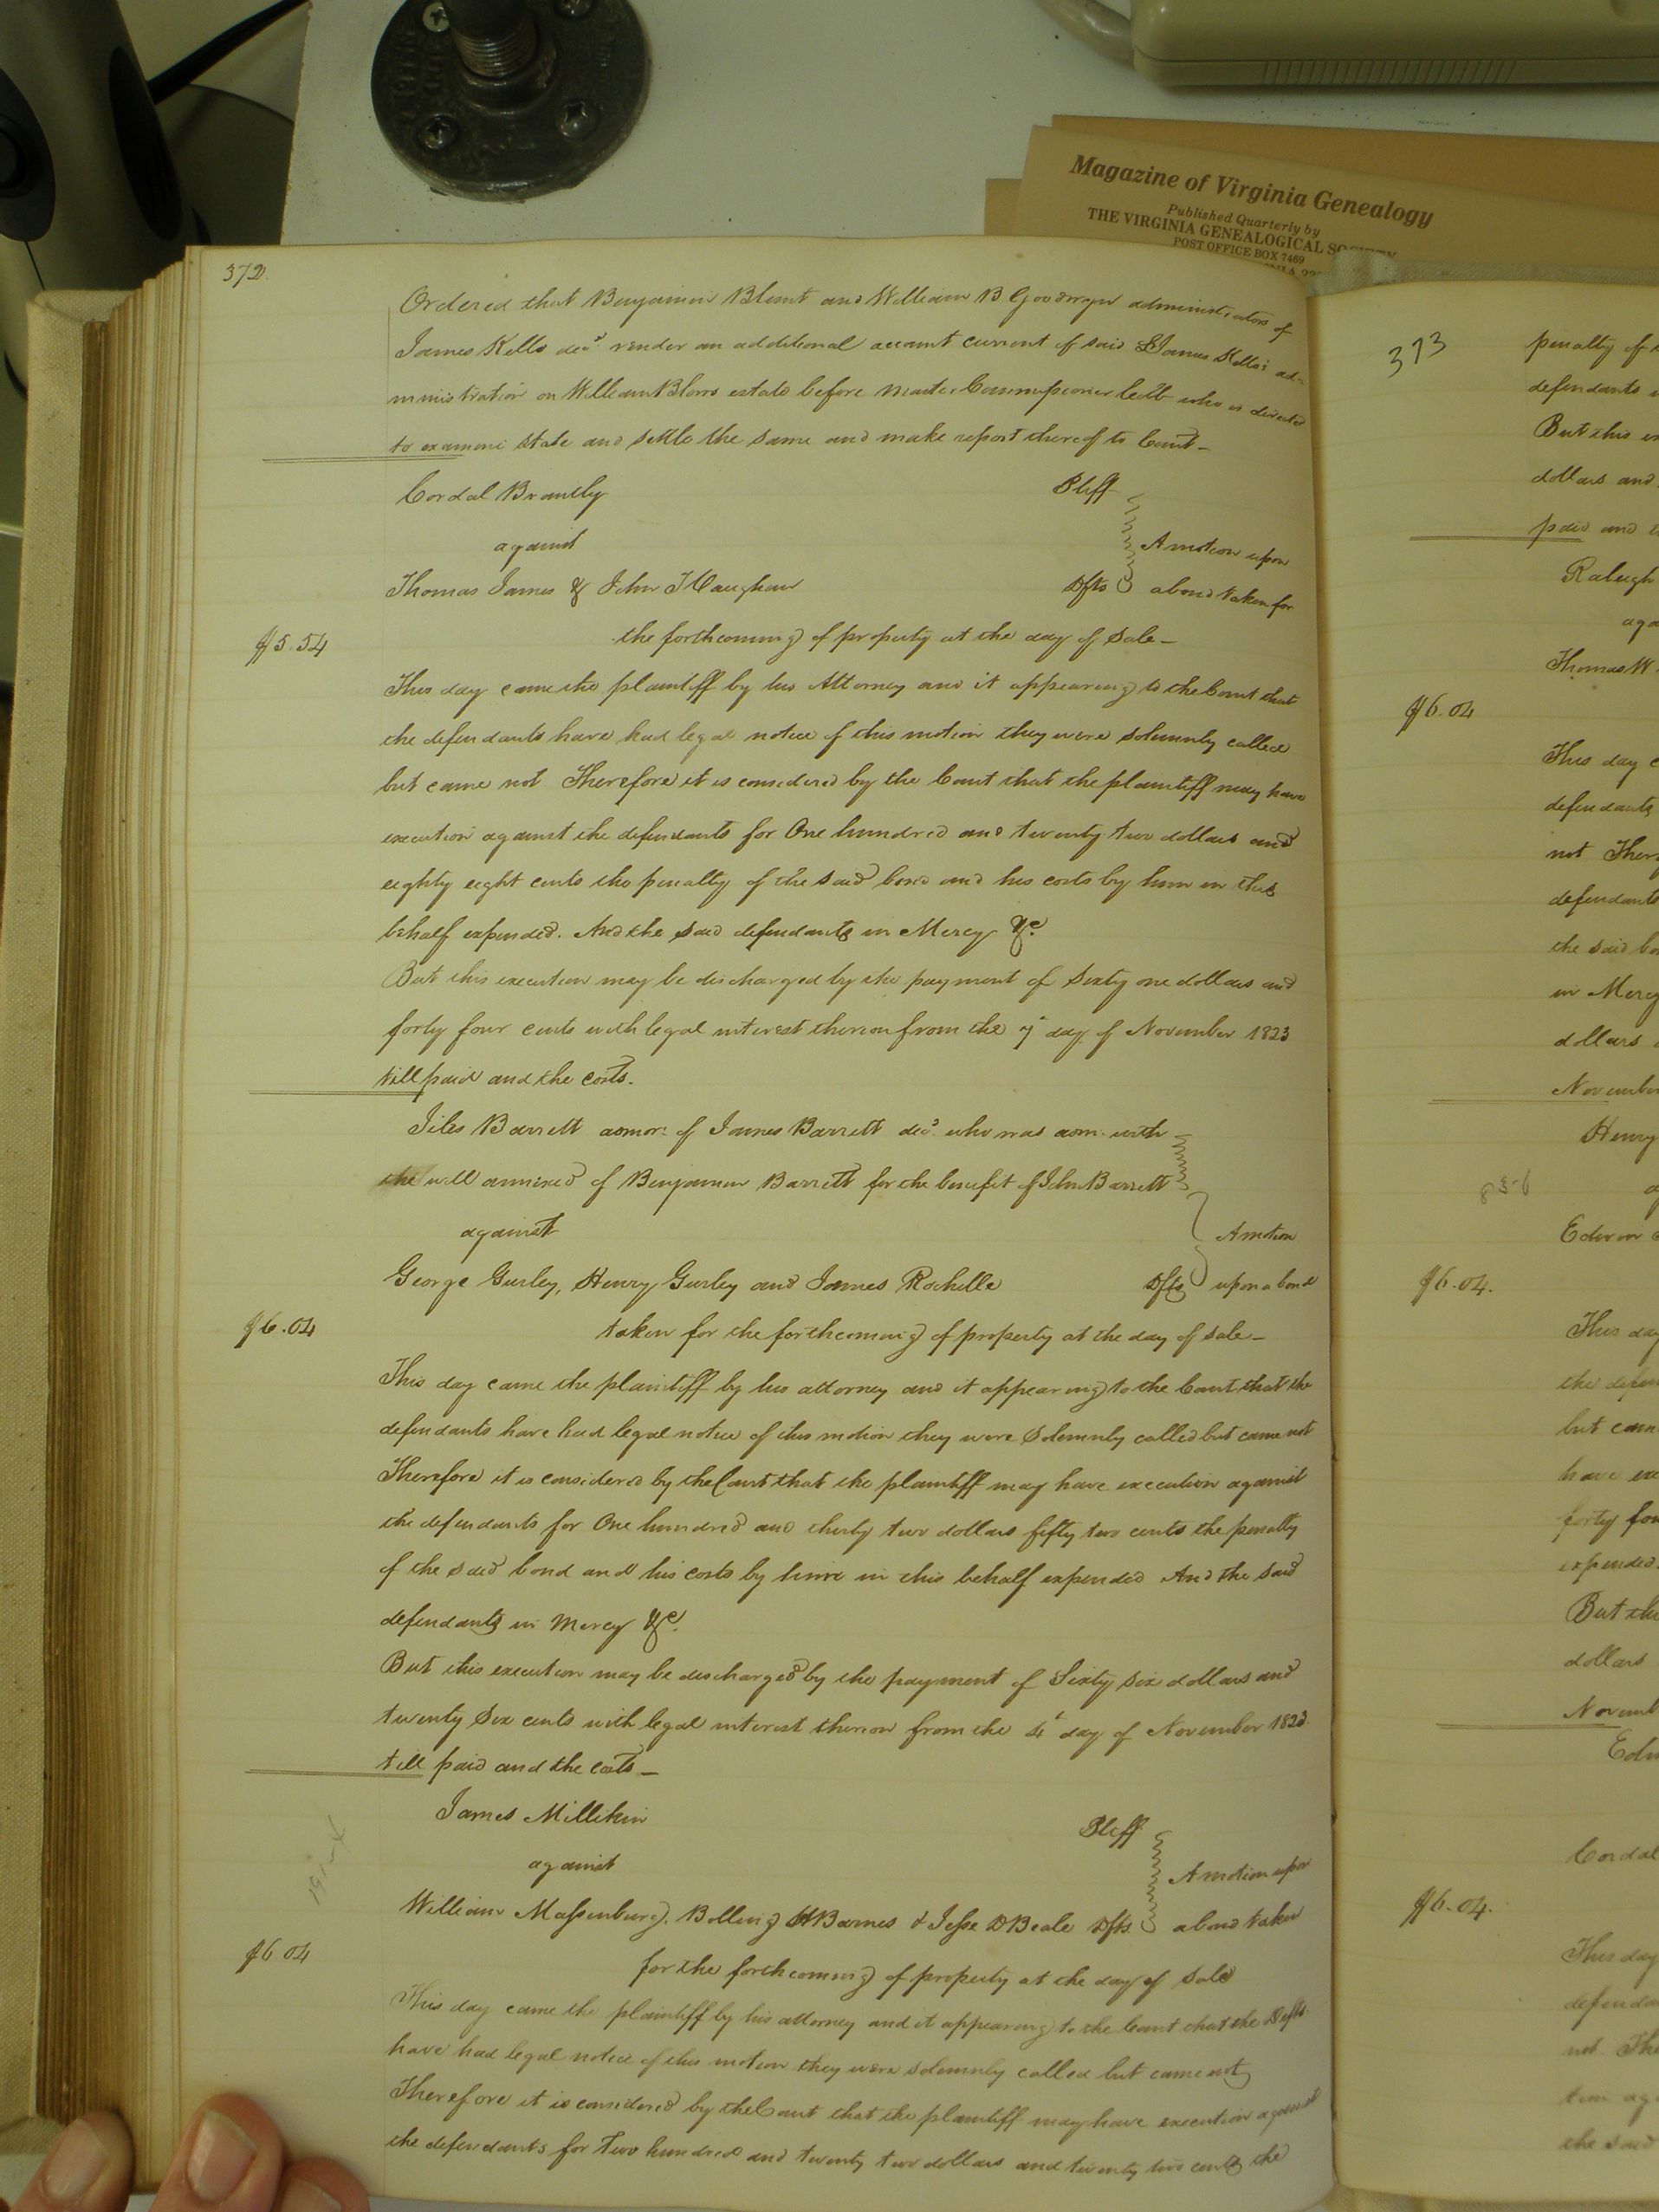 Magazine of Virginia Genealogy
Published Quarterly by
THE VIRGINIA GENEALOGICAL SOCIETY
POST OFFICE BOX 7469
372.
Ordered that Benjamin Blunt and William B Goodwyn administrators of
James Kello decd render an additional account current of said James Kello's ad-
ministration on William Blows estate before Master Commissioner Cobb who is directed
to examine state and settle the same and make report thereof to Court-
Cordal Brantly Pltff
against A motion upon
Thomas James & John T Vaughan Dfts a bond taken for
$5.54 the forthcoming of property at the day of Sale-
This day came the plaintiff by his Attorney and it appearing to the Court that
the defendants have had legal notice of this motion they were solemnly called
but came not Therefore it is considered by the Court that the plaintiff may have
execution against the defendants for One hundred and twenty two dollars and
eighty eight cents the penalty of the said bond and his costs by him in this
behalf expended. And the said defendants in Mercy &c.
But this execution may be discharged by the payment of Sixty one dollars and
forty four cents with legal interest thereon from the 7 day of November 1823
till paid and the costs.
Jiles Barrett admor. of James Barrett decd. who was adm. with
the will annexed of Benjamin Barrett for the benefit of John Barrett
against A motion
George Gurley, Henry Gurley and James Rochelle Dfts upon a bond
$6.04 taken for the forthcoming of property at the day of sale-
This day came the plaintiff by his attorney and it appearing to the Court that the
defendants have had legal notice of this motion they were Solemnly called but came not
Therefore it is considered by the Court that the plaintiff may have execution against
the defendants for One hundred and thirty two dollars fifty two cents the penalty
of the said bond and his costs by him in this behalf expended And the said
defendants in Mercy &c.
But this execution may be discharged by the payment of Sixty six dollars and
twenty Six cents with legal interest thereon from the 4 day of November 1823
till paid and the costs-
James Millikin Pltff
against A motion upon
William Massenburg, Bolling H Barnes & Jesse D Beale Dfts. a bond taken
$6.04 for the forthcoming of property at the day of Sale
This day came the plaintiff by his attorney and it appearing to the Court that the Defts
have had legal notice of this motion they were solemnly called but came not
Therefore it is considered by the Court that the plaintiff may have execution against
the defendants for Two hundred and twenty two dollars and twenty two cents the
373 penalty of
defendants
But this
dollars and
paid and
Raleigh
Thomas W
$6.04
This day
defendants
not
defendants
the said
in Mercy
dollars
November
Henry
Edwin
$6.04.
This day
the
but came
have
forty
expended.
But
dollars
Cordal
$6.04.
This day
not
the said